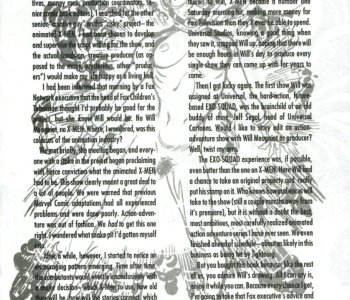 tives, money men, production coordinators, se-
nior
animated X-MEN. I had been chosen to develop
and supervise the story writing for the show, and
the actual creative producers (as op-
posed to the many, mysterious, "other produc-
ers") would make my life happy or a living hell.
I had been informed that morning by a Fox
Network executive that the head of Fox Children's
Television thought I'd probably be good for the
project, but she knew Will would be. No Will
Meugniot, no X-MEN. Where, I wondered, was this
colossus of the animation industry?
We met briefly, the meeting began, and every-
one with a stake in the project began proclaiming
with fierce conviction what the animated X-MEN
had to be. This show clearly meant a great deal to
a lot of people. We were warned that previous
Marvel Comic adaptations had all experienced
problems and were done poorly. Action-adven-
ture was out of fashion. We had to get this one
right. I wondered what straits pit I'd gotten myself
into.
After a while, however, I started to notice an
encouraging pattern emerging. Time after time,
the
a make a decision — which X-Men to use, how old
should they be, how will the stories connect, which
thanks to Will, X-MEN became a monster hit one
Saturday morning hit, making more money for
Fox Television than they'll ever be able to spend.
Universal Studios, knowing a good thing when
they saw it, snagged Will up, hoping that there will
be enough hours in Will's day to produce every
single show they can come up with for years to
come.
Then I got lucky again. The first show Will was
assigned at Universal, the hard-action, future-
based EXO-SQUAD, was the brainchild of an old
buddy of mine, Jeff Segal, head of Universal
Cartoons. Would I like to story edit an action-
adventure show with Will Meugniot its producer?
Well, twist my arm.
The EXO-SQUAD experience was, if possible,
even better than the one on X-MEN. Here we had
a chance to take an original property and craft it
put his stamp on it. Who knows how audiences will
take to the show (still a couple months away from
it's premiere), but it is without a doubt the best,
most ambitious, most carefully realized animated
action adventure series I have ever seen. We even
finished ahead of schedule — about as likely in this
business as being let by lightning.
But you bought this book because, like the rest
of us, you admire Will's drawing. All I can say is,
enjoy it while you can. Because every chance I get,
I'm going to take that Fox executive's advice and